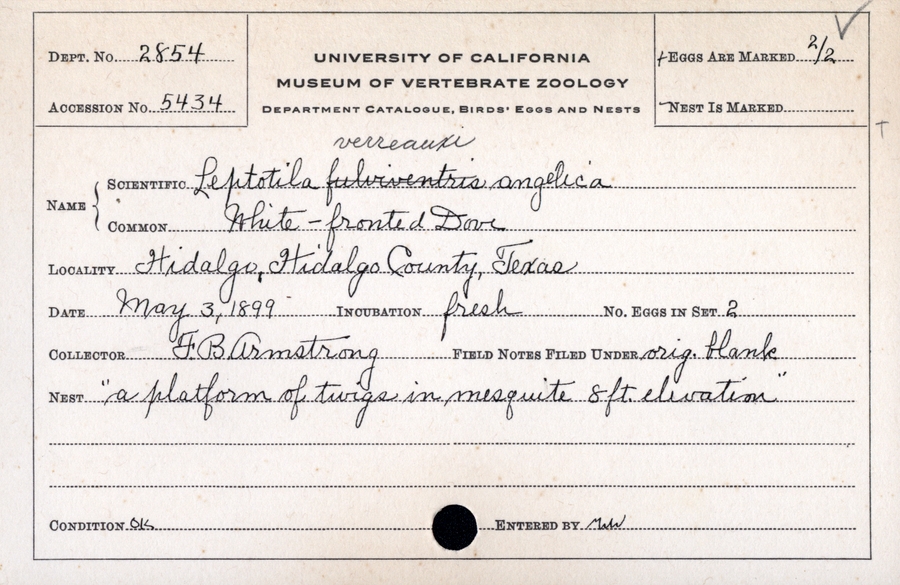 Dept. No. 2854
Accession No. 5434
University of California
Museum of Vertebrate Zoology
Department Catalogue, Birds' Eggs and Nests
Eggs Are Marked 2/2
Nest Is Marked
verreauxi
Name { Scientific Leptotila fulviventris angelica
Common White-fronted Dove
Locality Hidalgo, Hidalgo County, Texas
Date May 3, 1899 Incubation fresh No. Eggs in Set 2
Collector F.B. Armstrong Field Notes Filed Under orig. blank
Nest "a platform of twigs in mesquite 8 ft. elevation"
Condition OK Entered by